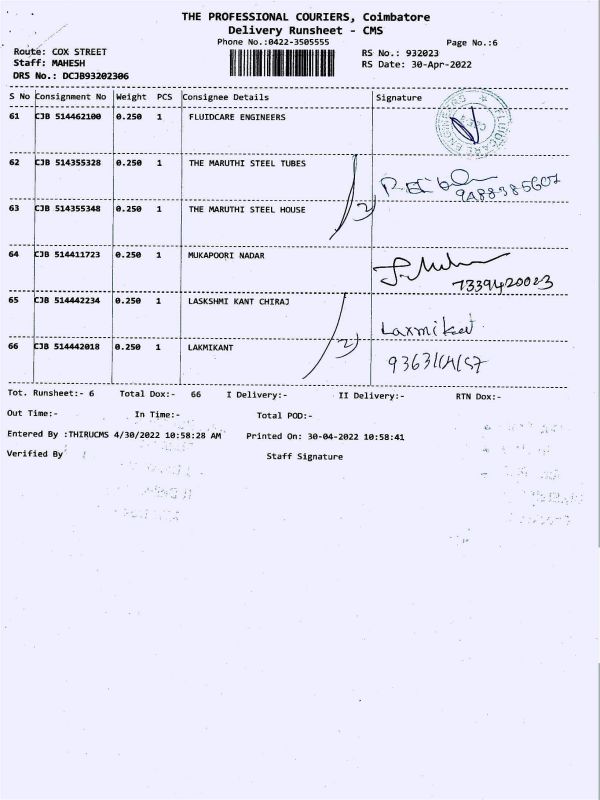 THE PROFESSIONAL COURIERS, Coimbatore
Delivery Runsheet - CMS
Phone No.:0422-3505555
Page No.:6
Route: COX STREET
RS No.: 932023
Staff: MAHESH
RS Date: 30-Apr-2022
DRS No.: DCJB93202306
S No Consignment No Weight PCS Consignee Details Signature
61 CJB 514462100 0.250 1 FLUIDCARE ENGINEERS
62 CJB 514355328 0.250 1 THE MARUTHI STEEL TUBES
9488385607
63 CJB 514355348 0.250 1 THE MARUTHI STEEL HOUSE
2)
64 CJB 514411723 0.250 1 MUKAPOORI NADAR
7339420023
65 CJB 514442234 0.250 1 LASKSHMI KANT CHIRAJ
Laxmikant
66 CJB 514442018 0.250 1 LAKMIKANT
2)
Tot. Runsheet:- 6 Total Dox:- 66 I Delivery:- II Delivery:- RTN Dox:-
Out Time:- In Time:- Total POD:-
Entered By :THIRUCMS 4/30/2022 10:58:28 AM Printed On: 30-04-2022 10:58:41
Verified By Staff Signature